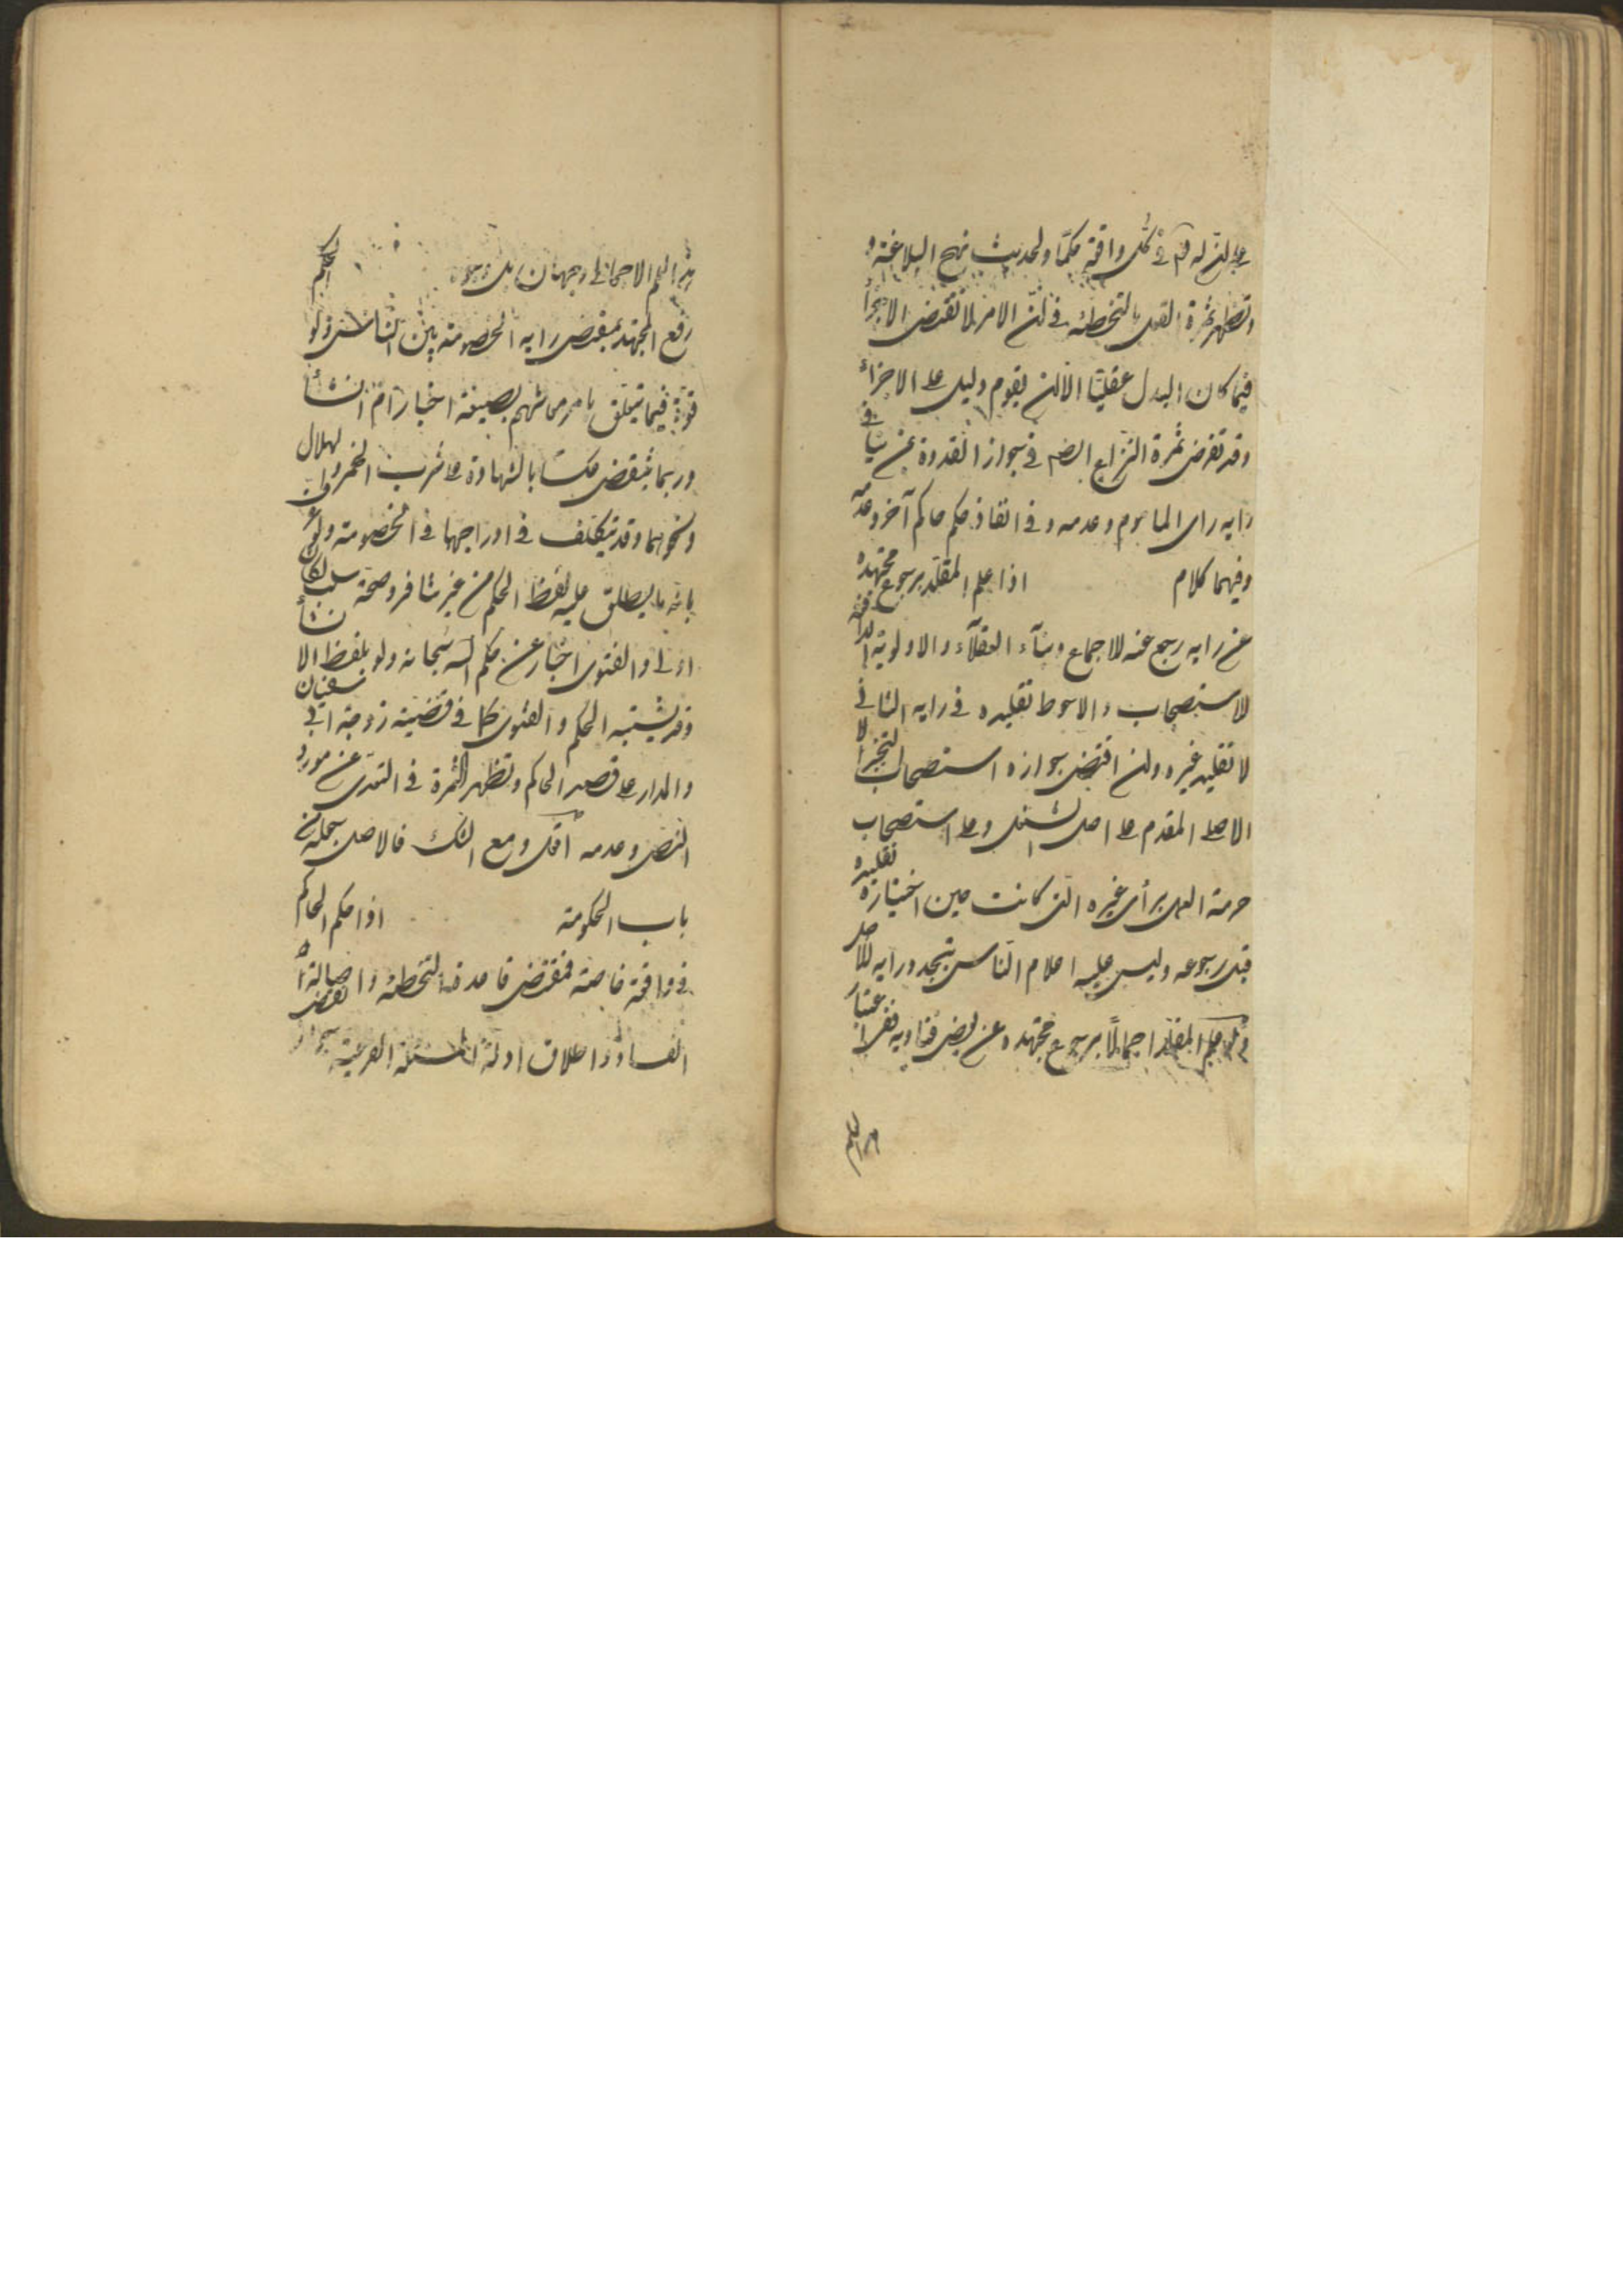 على ان له تع في كل واقعة حكما ولحديث نهج البلاغة و
وتظهر ثمرة القول بالتخطئة في ان الامر لا تقتضى الاجزأ
فيما كان البدل عقليا الا ان يقوم دليل على الاجزاء
وقد تفرض ثمرة النزاع ايضا في جواز القدوة بمن ينافي
رايه راى الماموم وعدمه وفى انفاذ حكم حاكم آخر وعدمه
وفيهما كلام اذا علم المقلد برجوع مجتهده
عن رايه رجع عنه للاجماع وبناء العقلاء والاولوية
للاستصحاب والاحوط تقليده في رايه الثانى
لا تقليد غيره وان اقتضى جوازه استصحاب التخير
الاصلى المقدم على اصل الشغل وعلى استصحاب
حرمة العمل برأى غيره التى كانت حين اختياره تقليده
قبل رجوعه وليس عليه اعلام الناس بتجدد رايه للاصل
ولو علم المقلد اجمالا برجوع مجتهده عن بعض فتاويه ففى اعتبار
هذا العلم
هذا العلم الاجمالى وجهان بل وجوه الحكم
رفع المجتهد بمقتضى رايه الخصومة بين الناس ولو
قوة فيما يتعلق بامر معاشهم بصيغة اخبار ام انشأ
وربما ينتقض عكسا بالشهادة على شرب الخمر والهلال
ونحوهما وقد يتكلف في ادراجها في الخصومة
بانه ما يطلق عليه لفظ الحكم من غير تنافر وصحة سلب لكان
اولى والفتوى اخبار عن حكم الله سبحانه ولو بلفظ الانشأ
وقد يشتبه الحكم والفتوى كما في قضية زوجة ابى سفيان
والمدار على قصد الحاكم وتظهر الثمرة في التعدى عن مورد
النص وعدمه ومع الشك فالاصل
باب الحكومة اذا حكم الحاكم
في واقعة خاصة فمقتضى قاعدة التخطئة واصالة
الفساد واطلاق ادلة المسئلة الفرعية جواز نقض